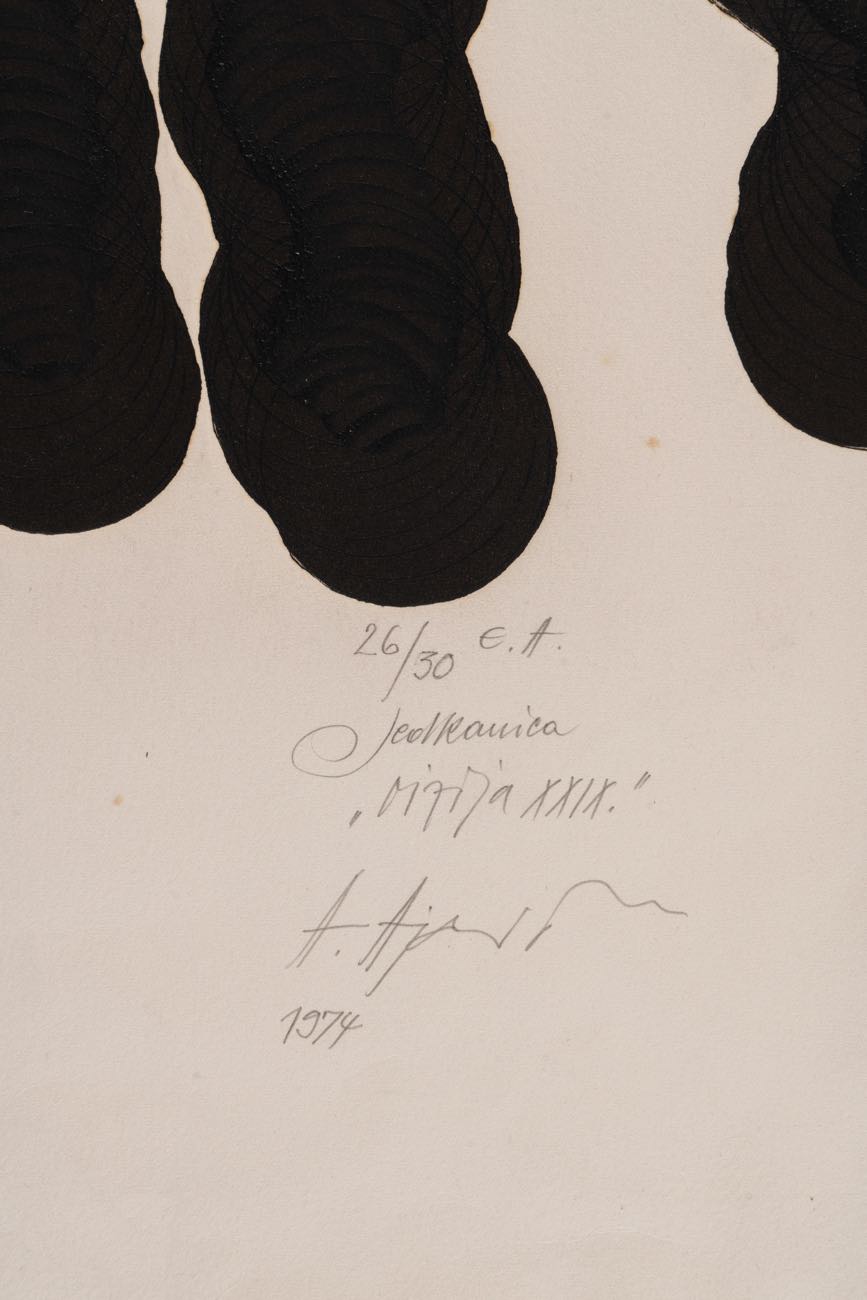 26/30 E.A.
Jedkanica
„Vizija XXIX."
A.
1974